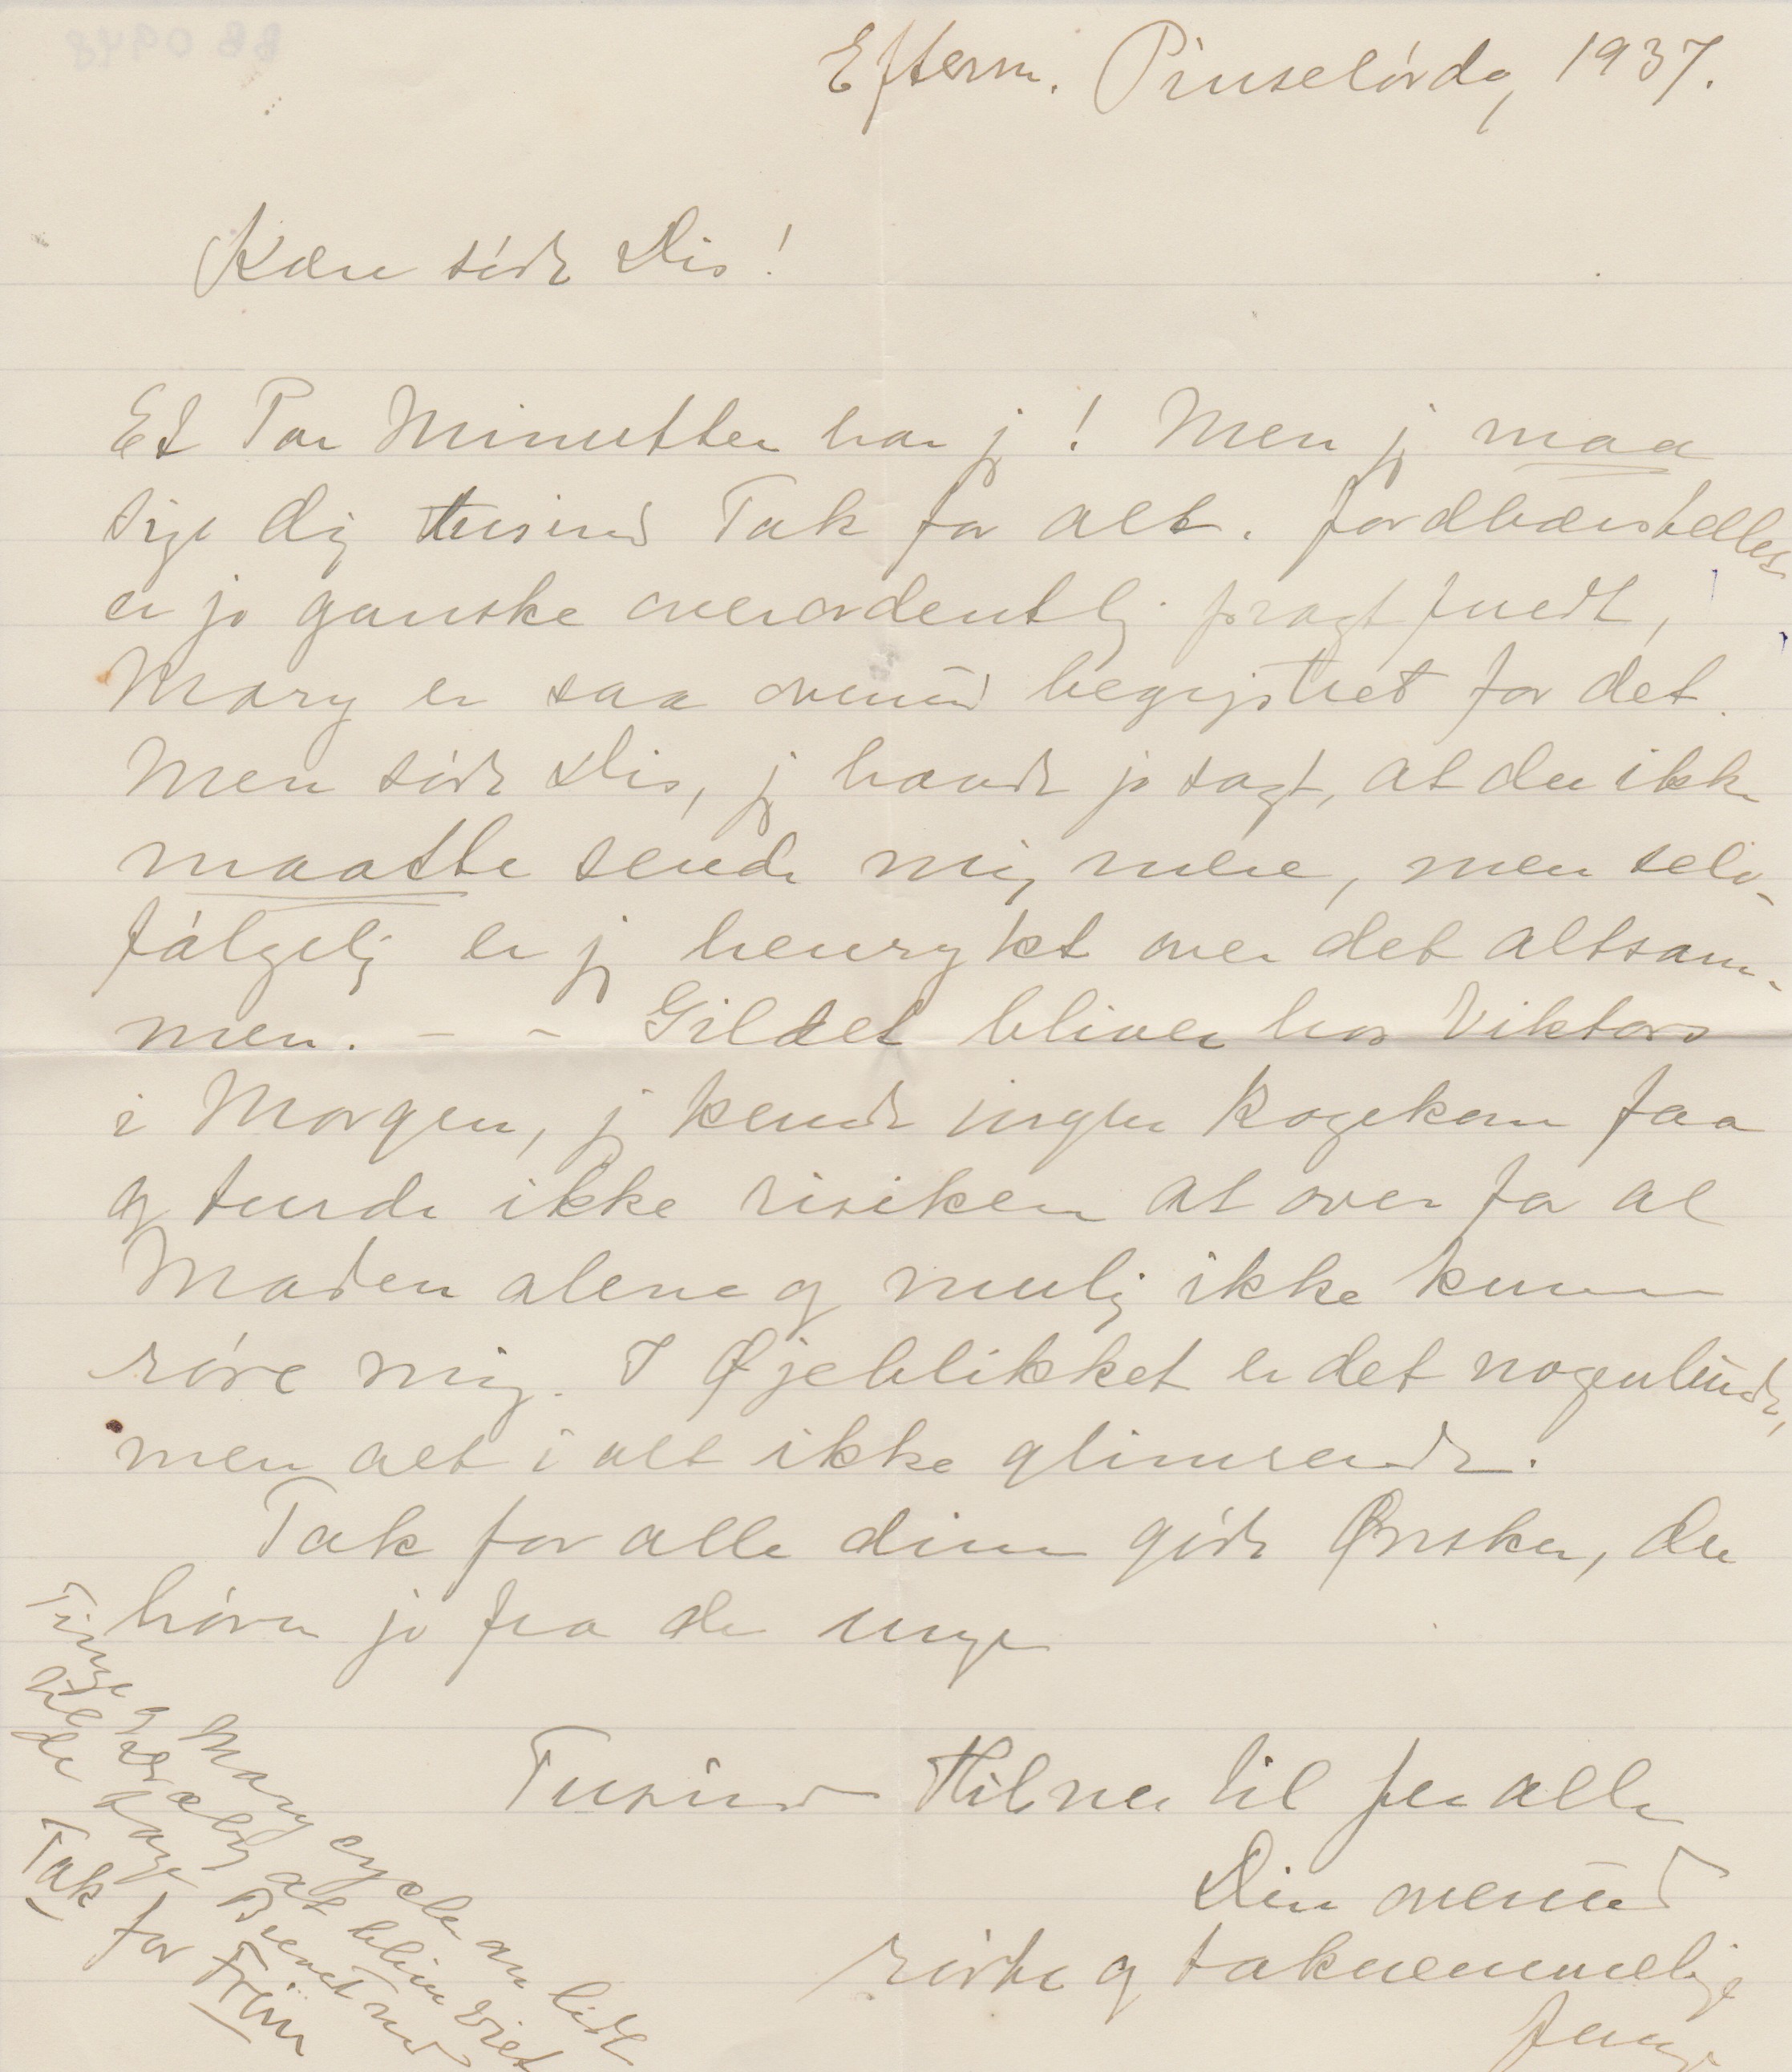 Efterm. Pinselørdag 1937.
Kære søde Dis!
Et Par Minutter har jeg! Men jeg maa
sige dig tusind Tak for alt. Jordbærstellet
er jo ganske overordentlig pragtfuldt,
Mary er saa ovenud begejstret for det.
Men søde Dis, jeg havde jo sagt, at du ikke
maatte sende mig mere, men selv-
følgelig er jeg henrykt over det altsam-
men. – – Gildet bliver hos Viktors
i Morgen, jeg kunde ingen Kogekone faa
og turde ikke risikere at over for al
Maden alene og mulig ikke kunne
røre mig. I Øjeblikket er det nogenlunde,
men alt i alt ikke glimrende.
Tak for alle dine gode Ønsker, du
hører jo fra de unge
Tusind Hilsner til Jer alle
Din ovenud
rørte og taknemmelige
Junge
Tinge og Mary cykler om lidt
til at blive viet
de Brevet med
Tak for Frim
BB 0948